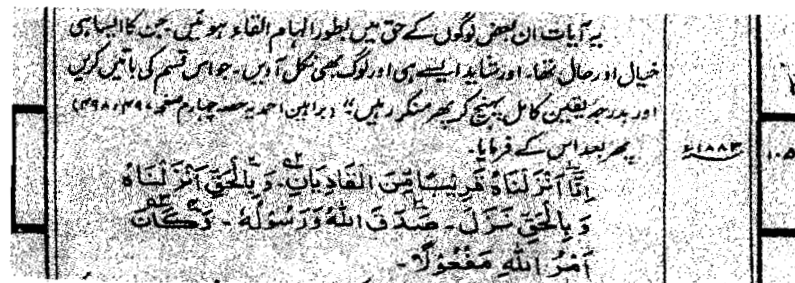 یہ آیات ان بعض لوگوں کے حق میں بطور الہام القاء ہوئیں۔ جن کا ایسا ہی
خیال اور حال تھا۔ اور شاید ایسے ہی اور لوگ بھی نکل آدیں۔ جو اس قسم کی باتیں کریں
اور بدرجۂ یقین کامل پہنچ کر پھر منکر رہیں" (براہین احمدیہ حصہ چہارم صفحہ ۴۹۷، ۴۹۸)
پھر بعد اس کے فرمایا۔
۱۸۸۳ء
۱۰۵
اِنَّا اَنْزَلْنَاهُ قَرِيْبًا مِّنَ الْقَادِيَانِ۔ وَبِالْحَقِّ اَنْزَلْنَاهُ
وَبِالْحَقِّ نَزَلَ۔ صَدَقَ اللّٰهُ وَرَسُوْلُهٗ۔ وَكَانَ
اَمْرُ اللّٰهِ مَفْعُوْلًا۔